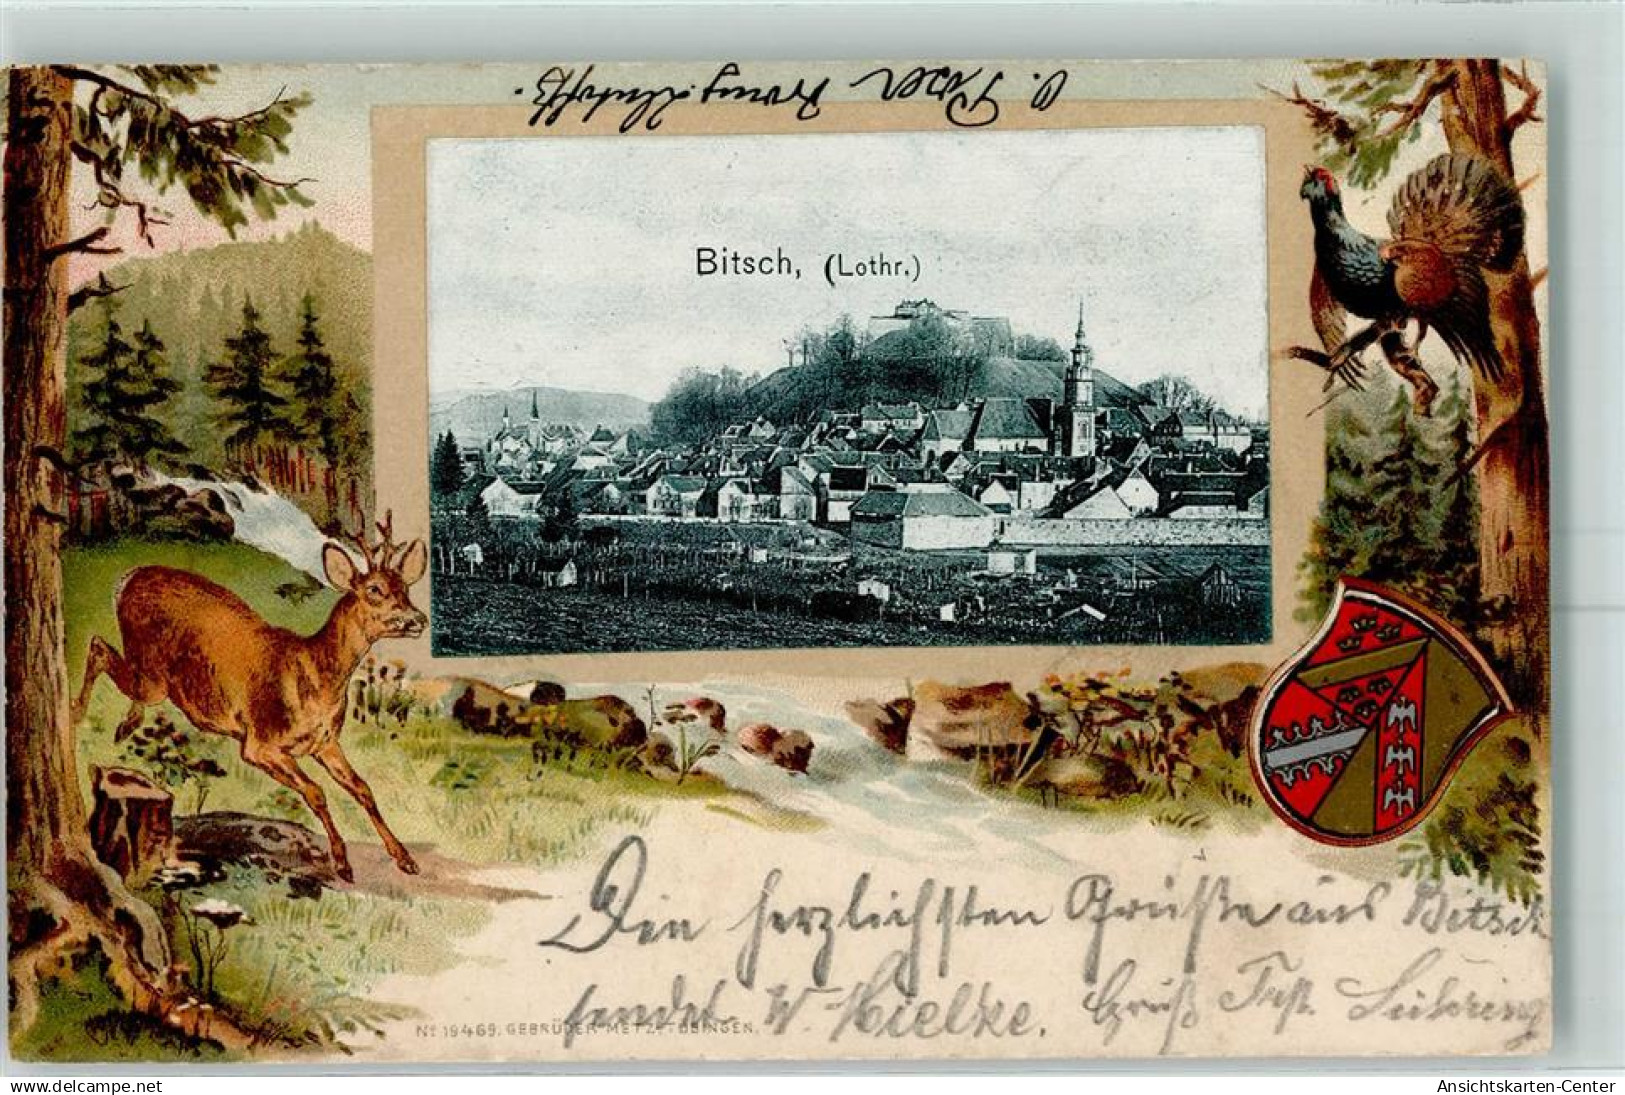 Bitsch, (Lothr.)
Die herzlichsten Grüße aus Bitsch
sendet W. Hielke. Gruß
No 19469. GEBRÜDER METZ, TÜBINGEN.
delcampe.net
Ansichtskarten-Center